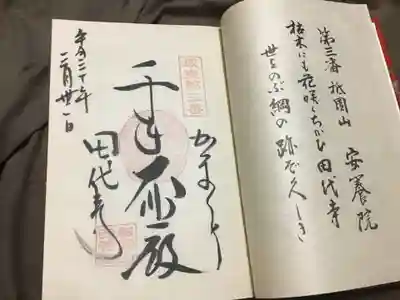 第三番 祇園山 安養院
枯木にも花咲くちかひ田代寺
世をのぶ綱の跡ぞ久しき
かまくら
千手
殿
田代寺
平成三十年